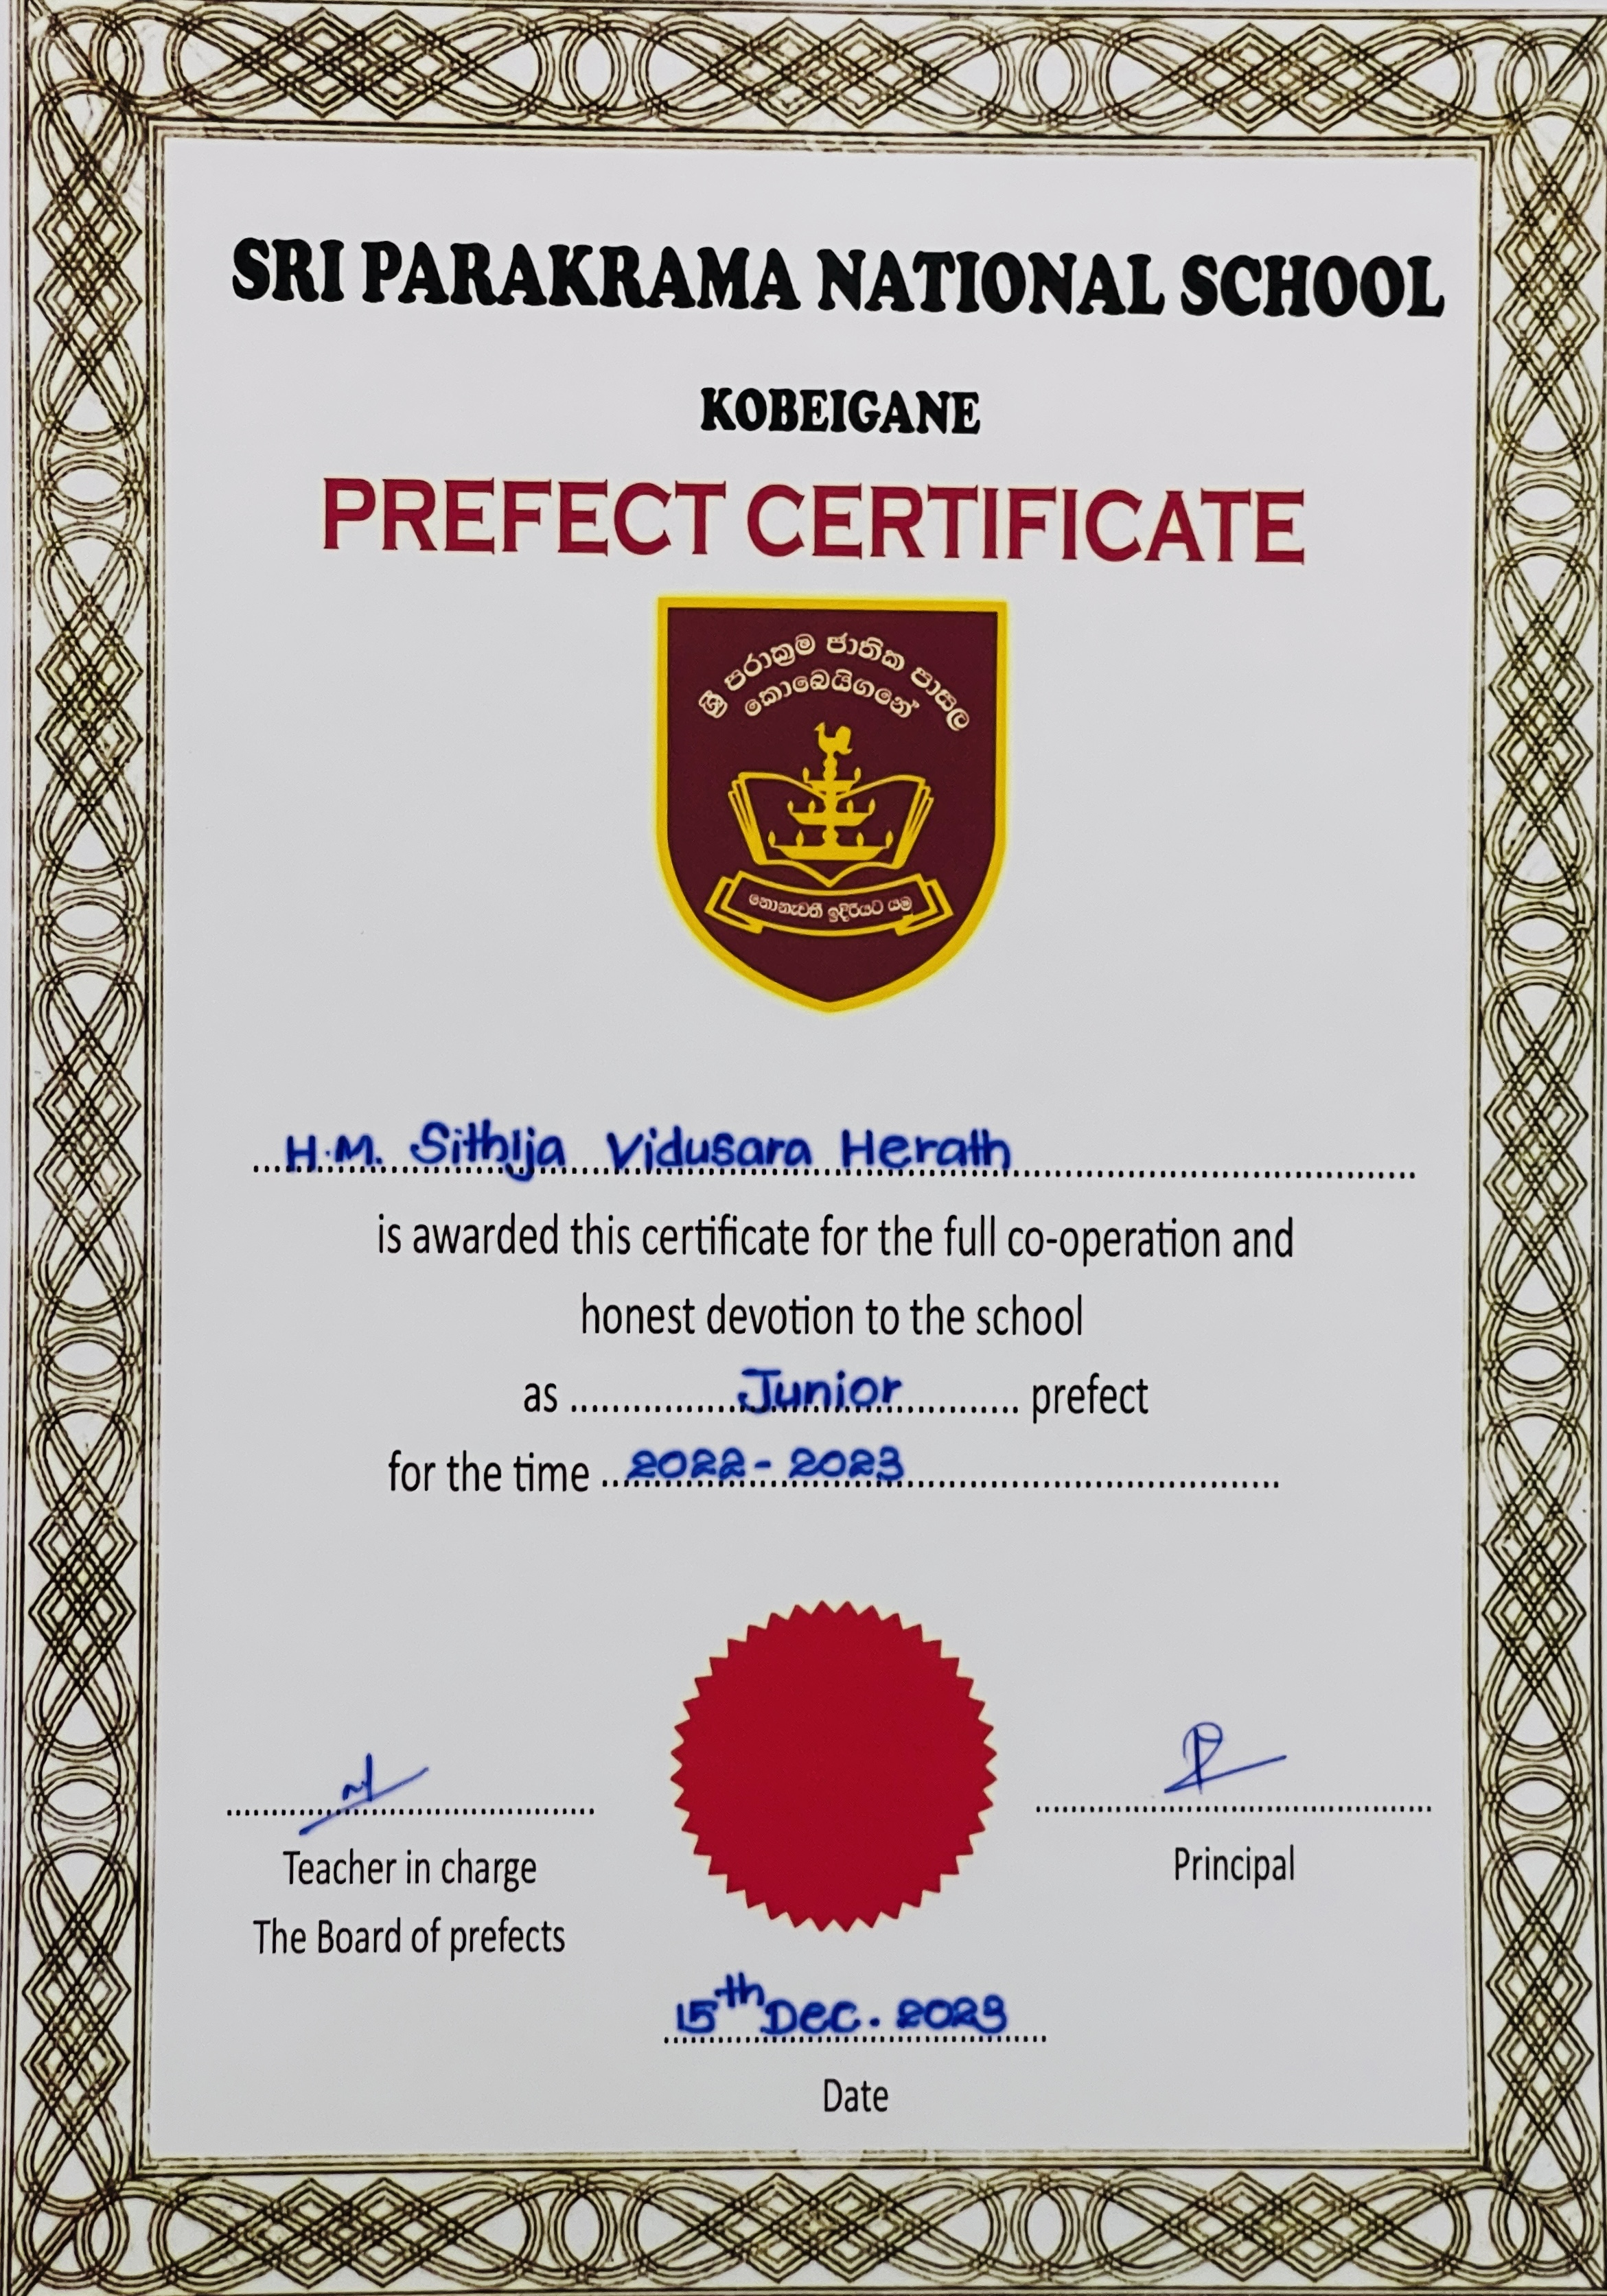 SRI PARAKRAMA NATIONAL SCHOOL
KOBEIGANE
PREFECT CERTIFICATE
ශ්‍රී පරාක්‍රම ජාතික පාසල
කොබෙයිගනේ
නොනැවතී ඉදිරියට යමු
H.M. Sithija Vidusara Herath
is awarded this certificate for the full co-operation and
honest devotion to the school
as .......... Junior .......... prefect
for the time .. 2022 - 2023 ..........
Teacher in charge
The Board of prefects
Principal
15th Dec. 2023
Date